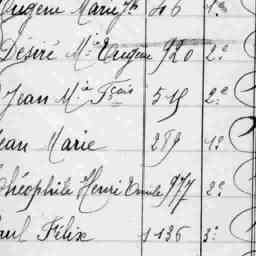 Eugène Marie Jh 46 1°
Désiré M.ie Eugène 920 2°
Jean M.ie Fçois 545 2°
Jean Marie 289 1°
Théophile Henri Emile 977 2°
Paul Félix 1136 3°